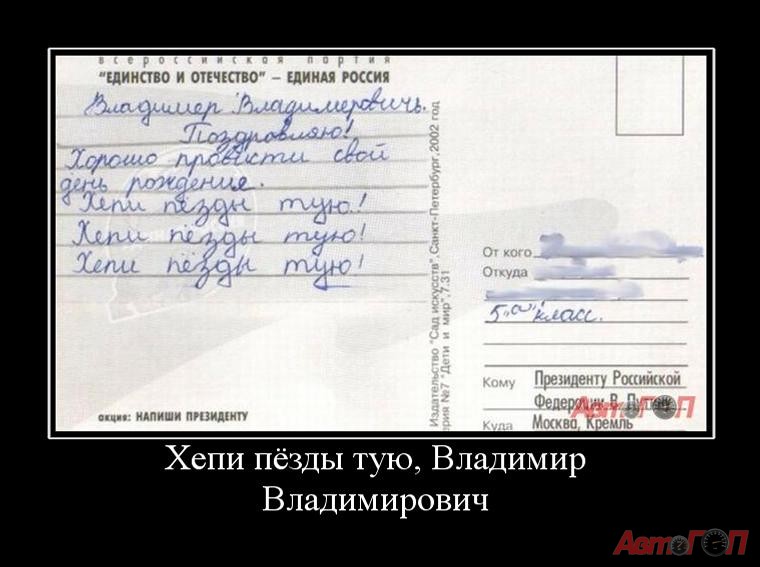 всероссийская партия
"ЕДИНСТВО И ОТЕЧЕСТВО" – ЕДИНАЯ РОССИЯ
Владимер Владимеровичь.
Поздровляю!
Хорошо провисти свой
день рождение.
Хепи пёзды тую!
Хепи пёзды тую!
Хепи пёзды тую!
акция: НАПИШИ ПРЕЗИДЕНТУ
Издательство "Сад искусств", Санкт-Петербург, 2002 год
ерия №7 "Дети и мир", 7.31
От кого
Откуда
5 "а" класс.
Кому Президенту Российской
Федерации В. Путину
Куда Москва, Кремль
АвтоГОП
Хепи пёзды тую, Владимир
Владимирович
АвтоГОП